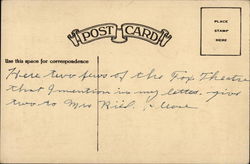 POST CARD
PLACE
STAMP
HERE
Use this space for correspondence
Here two fews of the Fox Theatre
that I mention in my letter. give
two to Mrs